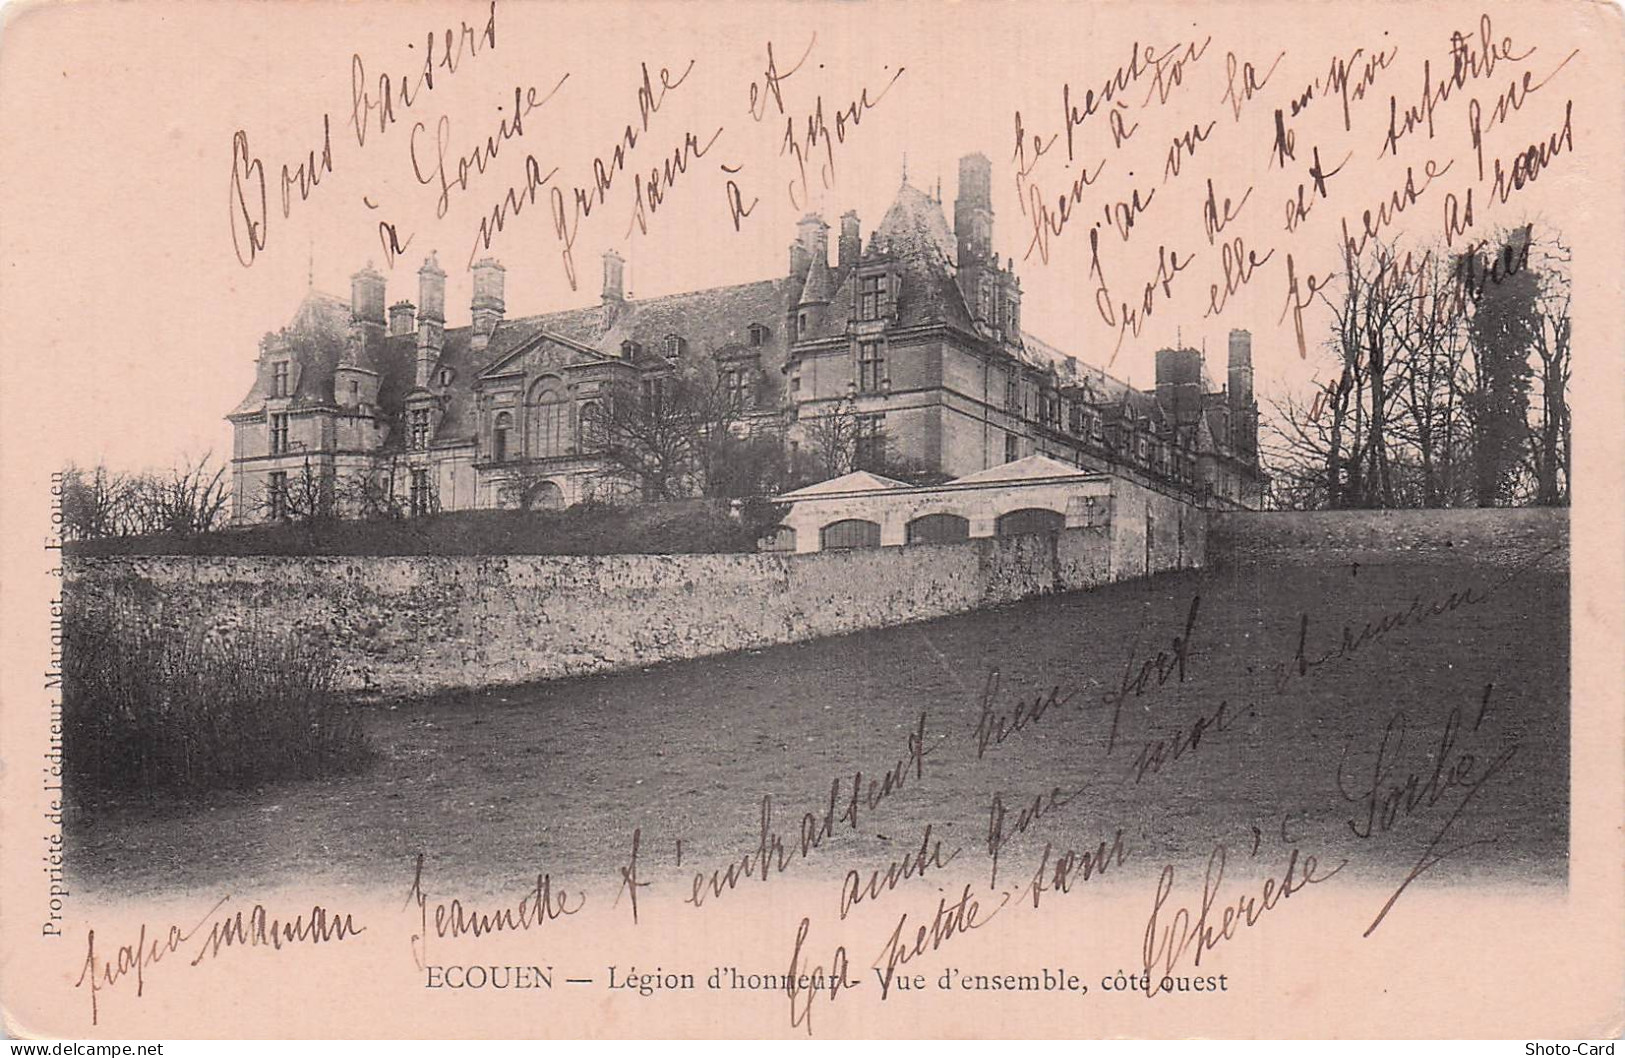 Bons baisers
à Louise
ma
grande
sœur et
à Zizou
Je pense
bien à toi
J'ai vu la
rose de
elle est superbe
Je pense que
as reçus
papa maman Jeannette t'embrassent bien fort
ainsi que moi et
Ta petite sœur
Thérèse
ECOUEN — Légion d'honneur - Vue d'ensemble, côté ouest
Propriété de l'éditeur Marquet, à Ecouen
Shoto-Card
www.delcampe.net